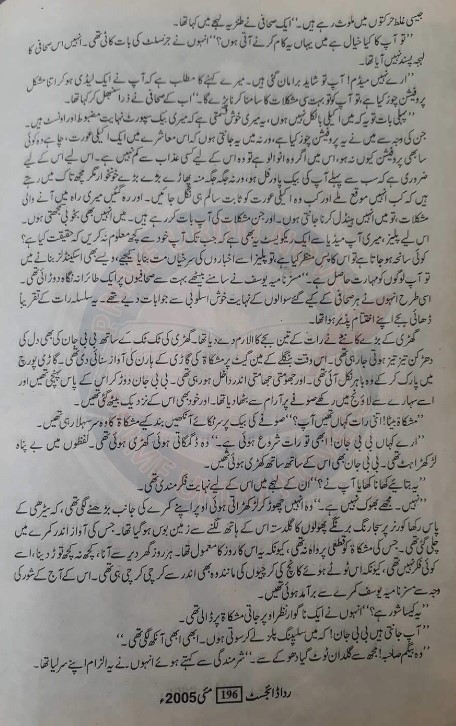 جیسی غلط حرکتوں میں ملوث رہے ہیں۔“ ایک صحافی نے طنزیہ لہجے میں کہا تھا۔
”تو آپ کا کیا خیال ہے میں یہاں یہ کام کرنے آتی ہوں؟“ انہوں نے جرنلسٹ کی بات کاٹی تھی۔ انہیں اس صحافی کا
لہجہ پسند نہیں آیا تھا۔
”ارے نہیں میڈم! آپ تو شاید برا مان گئی ہیں۔ میرے کہنے کا مطلب ہے کہ آپ نے ایک لیڈی ہو کر اتنا مشکل
پروفیشن چوز کیا ہے، تو آپ کو تو بہت سی مشکلات کا سامنا کرنا پڑے گا۔“ اب کے صحافی نے ذرا سنبھل کر کہا تھا۔
”پہلی بات تو یہ کہ میں اکیلی بالکل نہیں ہوں، یہ میری خوش قسمتی ہے کہ میری بیک سپورٹ نہایت مضبوط اور اونسٹ ہیں۔
جن کی وجہ سے میں نے یہ پروفیشن چوز کیا ہے، ورنہ میں یہ جانتی ہوں کہ اس معاشرے میں ایک اکیلی عورت، چاہے وہ کوئی
سا بھی پروفیشن کیوں نہ ہو، اس میں اگر وہ انوالو ہے تو وہ اس کے لیے کسی عذاب سے کم نہیں ہے۔ اس لیے اس کے لیے
ضروری ہے کہ سب سے پہلے آپ کی بیک پاورفل ہو، ورنہ جگہ جگہ منہ پھاڑے بڑے بڑے خونخوار مگرمچھ تاک میں رہتے
ہیں کہ کب انہیں موقع ملے اور کب وہ اکیلی عورت کو ثابت سالم ہی نگل جائیں۔ اور رہ گئیں میری راہ میں آنے والی
مشکلات، تو میں انہیں ہینڈل کرنا جانتی ہوں۔ اور جن مشکلات کی آپ بات کر رہے ہیں۔ میں انہیں بھی بخوبی سمجھتی ہوں۔
اس لیے پلیز، میری آپ میڈیا سے ایک ریکویسٹ یہ بھی ہے کہ جب تک آپ خود سے کچھ معلوم نہ کریں کہ حقیقت کیا ہے؟
کوئی سانحہ ہو جاتا ہے تو اس کا پس منظر کیا ہے، تو پلیز اسے اخباروں کی سرخیاں مت بنایا کیجیے، ویسے بھی اسکینڈلز بنانے میں
تو آپ لوگوں کو مہارت حاصل ہے۔“ مسز نامیہ یوسف نے سامنے بیٹھے بہت سے صحافیوں پر ایک طائرانہ نگاہ دوڑائی تھی۔
اسی طرح انہوں نے ہر صحافی کے کیے گئے سوالوں کے نہایت خوش اسلوبی سے جوابات دیے تھے۔ یہ سلسلہ رات کے تقریباً
ڈھائی بجے اپنے اختتام پذیر ہوا تھا۔
گھڑی کے بڑے کانٹے نے رات کے تین بجے کا الارم دے دیا تھا۔ گھڑی کی ٹک ٹک کے ساتھ بی بی جان کی بھی دل کی
دھڑکن تیز تیز ہوتی جا رہی تھی۔ اسی وقت بنگلے کے مین گیٹ پر مشکاۃ کی گاڑی کے ہارن کی آواز سنائی دی تھی۔ گاڑی پورچ
میں پارک کر کے وہ باہر نکل آئی تھی۔ اور جھومتی جھامتی اندر داخل ہو رہی تھی۔ بی بی جان دوڑ کر اس کے پاس پہنچی تھیں اور
اسے سہارے سے لاؤنج میں رکھے صوفے پر آرام سے بٹھا دیا تھا۔ اور خود بھی اس کے نزدیک بیٹھ گئی تھیں۔
”مشکاۃ بیٹا! اتنی رات کہاں تھیں آپ؟“ صوفے کی بیک پر سر ٹکائے آنکھیں بند کیے مشکاۃ کا وہ سر سہلا رہی تھیں۔
”ارے کہاں بی بی جان! ابھی تو رات شروع ہوئی ہے۔“ وہ ڈگمگاتی ہوئی کھڑی ہوئی تھی۔ لفظوں میں بے پناہ
لڑکھڑاہٹ تھی۔ بی بی جان بھی اس کے ساتھ کھڑی ہوئی تھیں۔
”یہ بتائیے کھانا کھایا آپ نے؟“ ان کے لہجے میں اس کے لیے نہایت فکرمندی تھی۔
”نہیں۔ مجھے بھوک نہیں ہے۔“ وہ انہیں چھوڑ کر لڑکھڑاتی ہوئی اوپر اپنے کمرے کی جانب بڑھنے لگی تھی، کہ سیڑھی کے
پاس رکھا کورنر پر سجا رنگ برنگے پھولوں کا گلدستہ اس کے ہاتھ لگنے سے زمین بوس ہو گیا تھا۔ جس کی آواز اندر کمرے میں
چلی گئی تھی۔ جس کی مشکاۃ کو قطعی پرواہ نہ تھی، کیونکہ یہ اس کا روز کا معمول تھا۔ ہر روز گھر دیر سے آنا، کچھ نہ کچھ توڑ دینا، اسے
کوئی فکر نہیں تھی، کیونکہ اس ٹوٹے ہوئے کانچ کی کرچیوں کی مانند وہ بھی اندر سے کرچی کرچی ہی تھی۔ اس کے آج کے شور کی
وجہ سے مسز نامیہ یوسف کمرے سے برآمد ہوئی تھیں۔
”یہ کیسا شور ہے؟“ انہوں نے ایک ناگوار نظر اوپر جاتی مشکاۃ پر ڈالی تھی۔
”آپ جانتی ہیں بی بی جان! کہ میں سلیپنگ پلز لے کر سوتی ہوں۔ ابھی ابھی آنکھ لگی تھی۔“
”وہ بیگم صاحبہ! مجھ سے گلدان ٹوٹ گیا دھوکے سے۔“ شرمندگی سے کہتے ہوئے انہوں نے یہ الزام اپنے سر لیا تھا۔
ردا ڈائجسٹ 196 مئی 2005ء